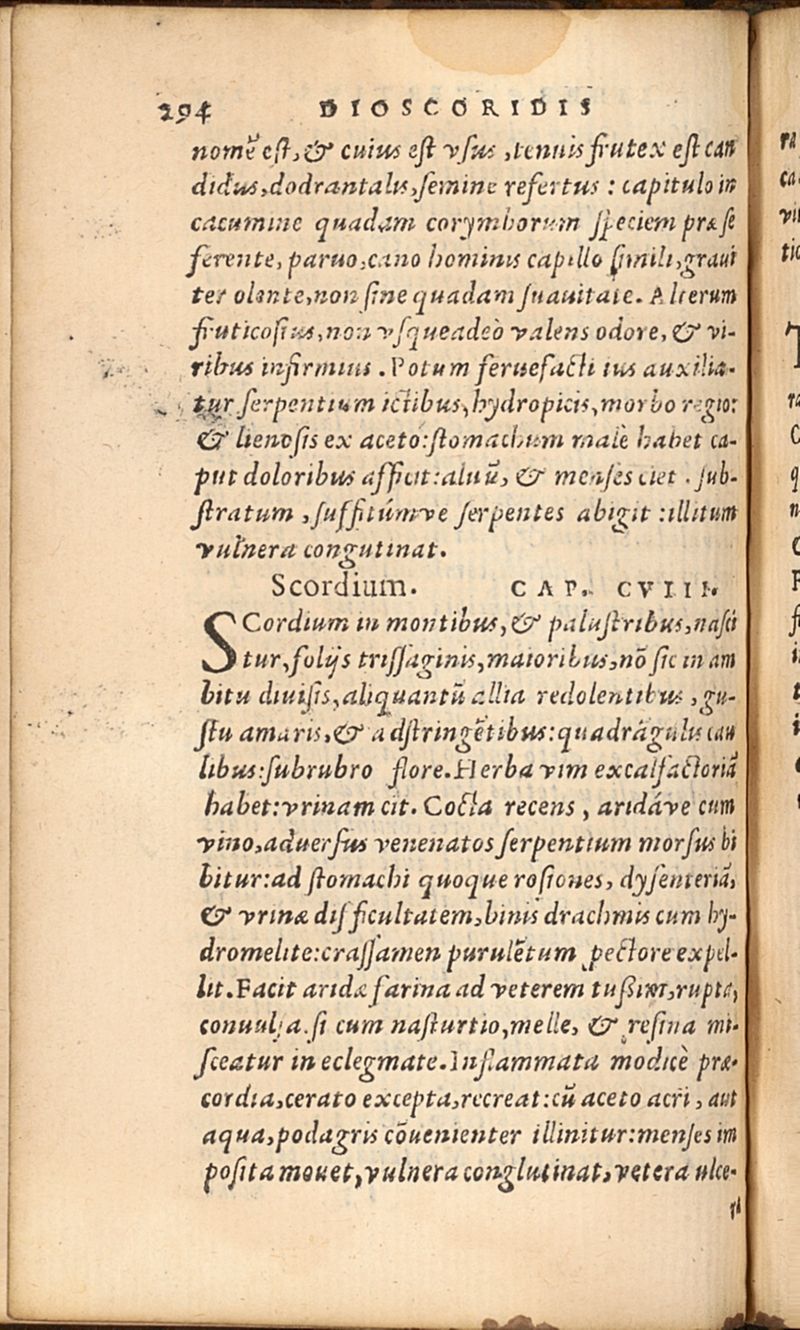 294 DIOSCORIDIS
nomē est, & cuius est vsus, tenuis frutex est can
didus, dodrantalis, semine refertus : capitulo in
cacumine quadam corymborum speciem præ se
ferente, paruo, cano hominis capillo simili, graui
ter olente, non sine quadam suauitate. Alterum
fruticosius, non vsqueadeò valens odore, & vi-
ribus infirmius . Potum feruefacti ius auxilia-
tur serpentium ictibus, hydropicis, morbo regio:
& lienosis ex aceto: stomachum malè habet ca-
put doloribus afficit: aluū, & menses ciet . sub-
stratum , suffitúmve serpentes abigit : illitum
vulnera congutinat.
Scordium. CAP. CVIII.
SCordium in montibus, & palustribus, nasci
tur, folijs trissaginis, maioribus, nō sic in am
bitu diuisis, aliquantū allia redolentibus , gu-
stu amaris, & adstringētibus: quadrāgulis cau
libus: subrubro flore. Herba vim excalfactoriā
habet: vrinam cit. Cocta recens , aridáve cum
vino, aduersus venenatos serpentium morsus bi
bitur: ad stomachi quoque rosiones, dysenteriā,
& vrinæ difficultatem, binis drachmis cum hy-
dromelite: crassamen purulētum pectore expel-
lit. Facit aridæ farina ad veterem tußim, rupta,
conuulsa. si cum nasturtio, melle, & resina mi-
sceatur in eclegmate. Inflammata modicè præ-
cordia, cerato excepta, recreat: cū aceto acri , aut
aqua, podagris cōuenienter illinitur: menses im
posita mouet, vulnera conglutinat, vetera vlce-
ra